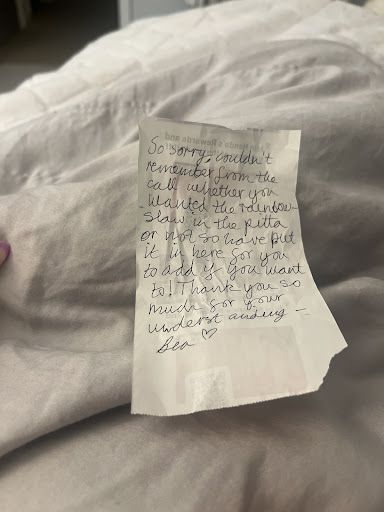 So sorry, couldn't
remember from the
call whether you
wanted the rainbow
slaw in the pitta
or not so have put
it in here for you
to add if you want
to! Thank you so
much for your
understanding –
Bea ♡